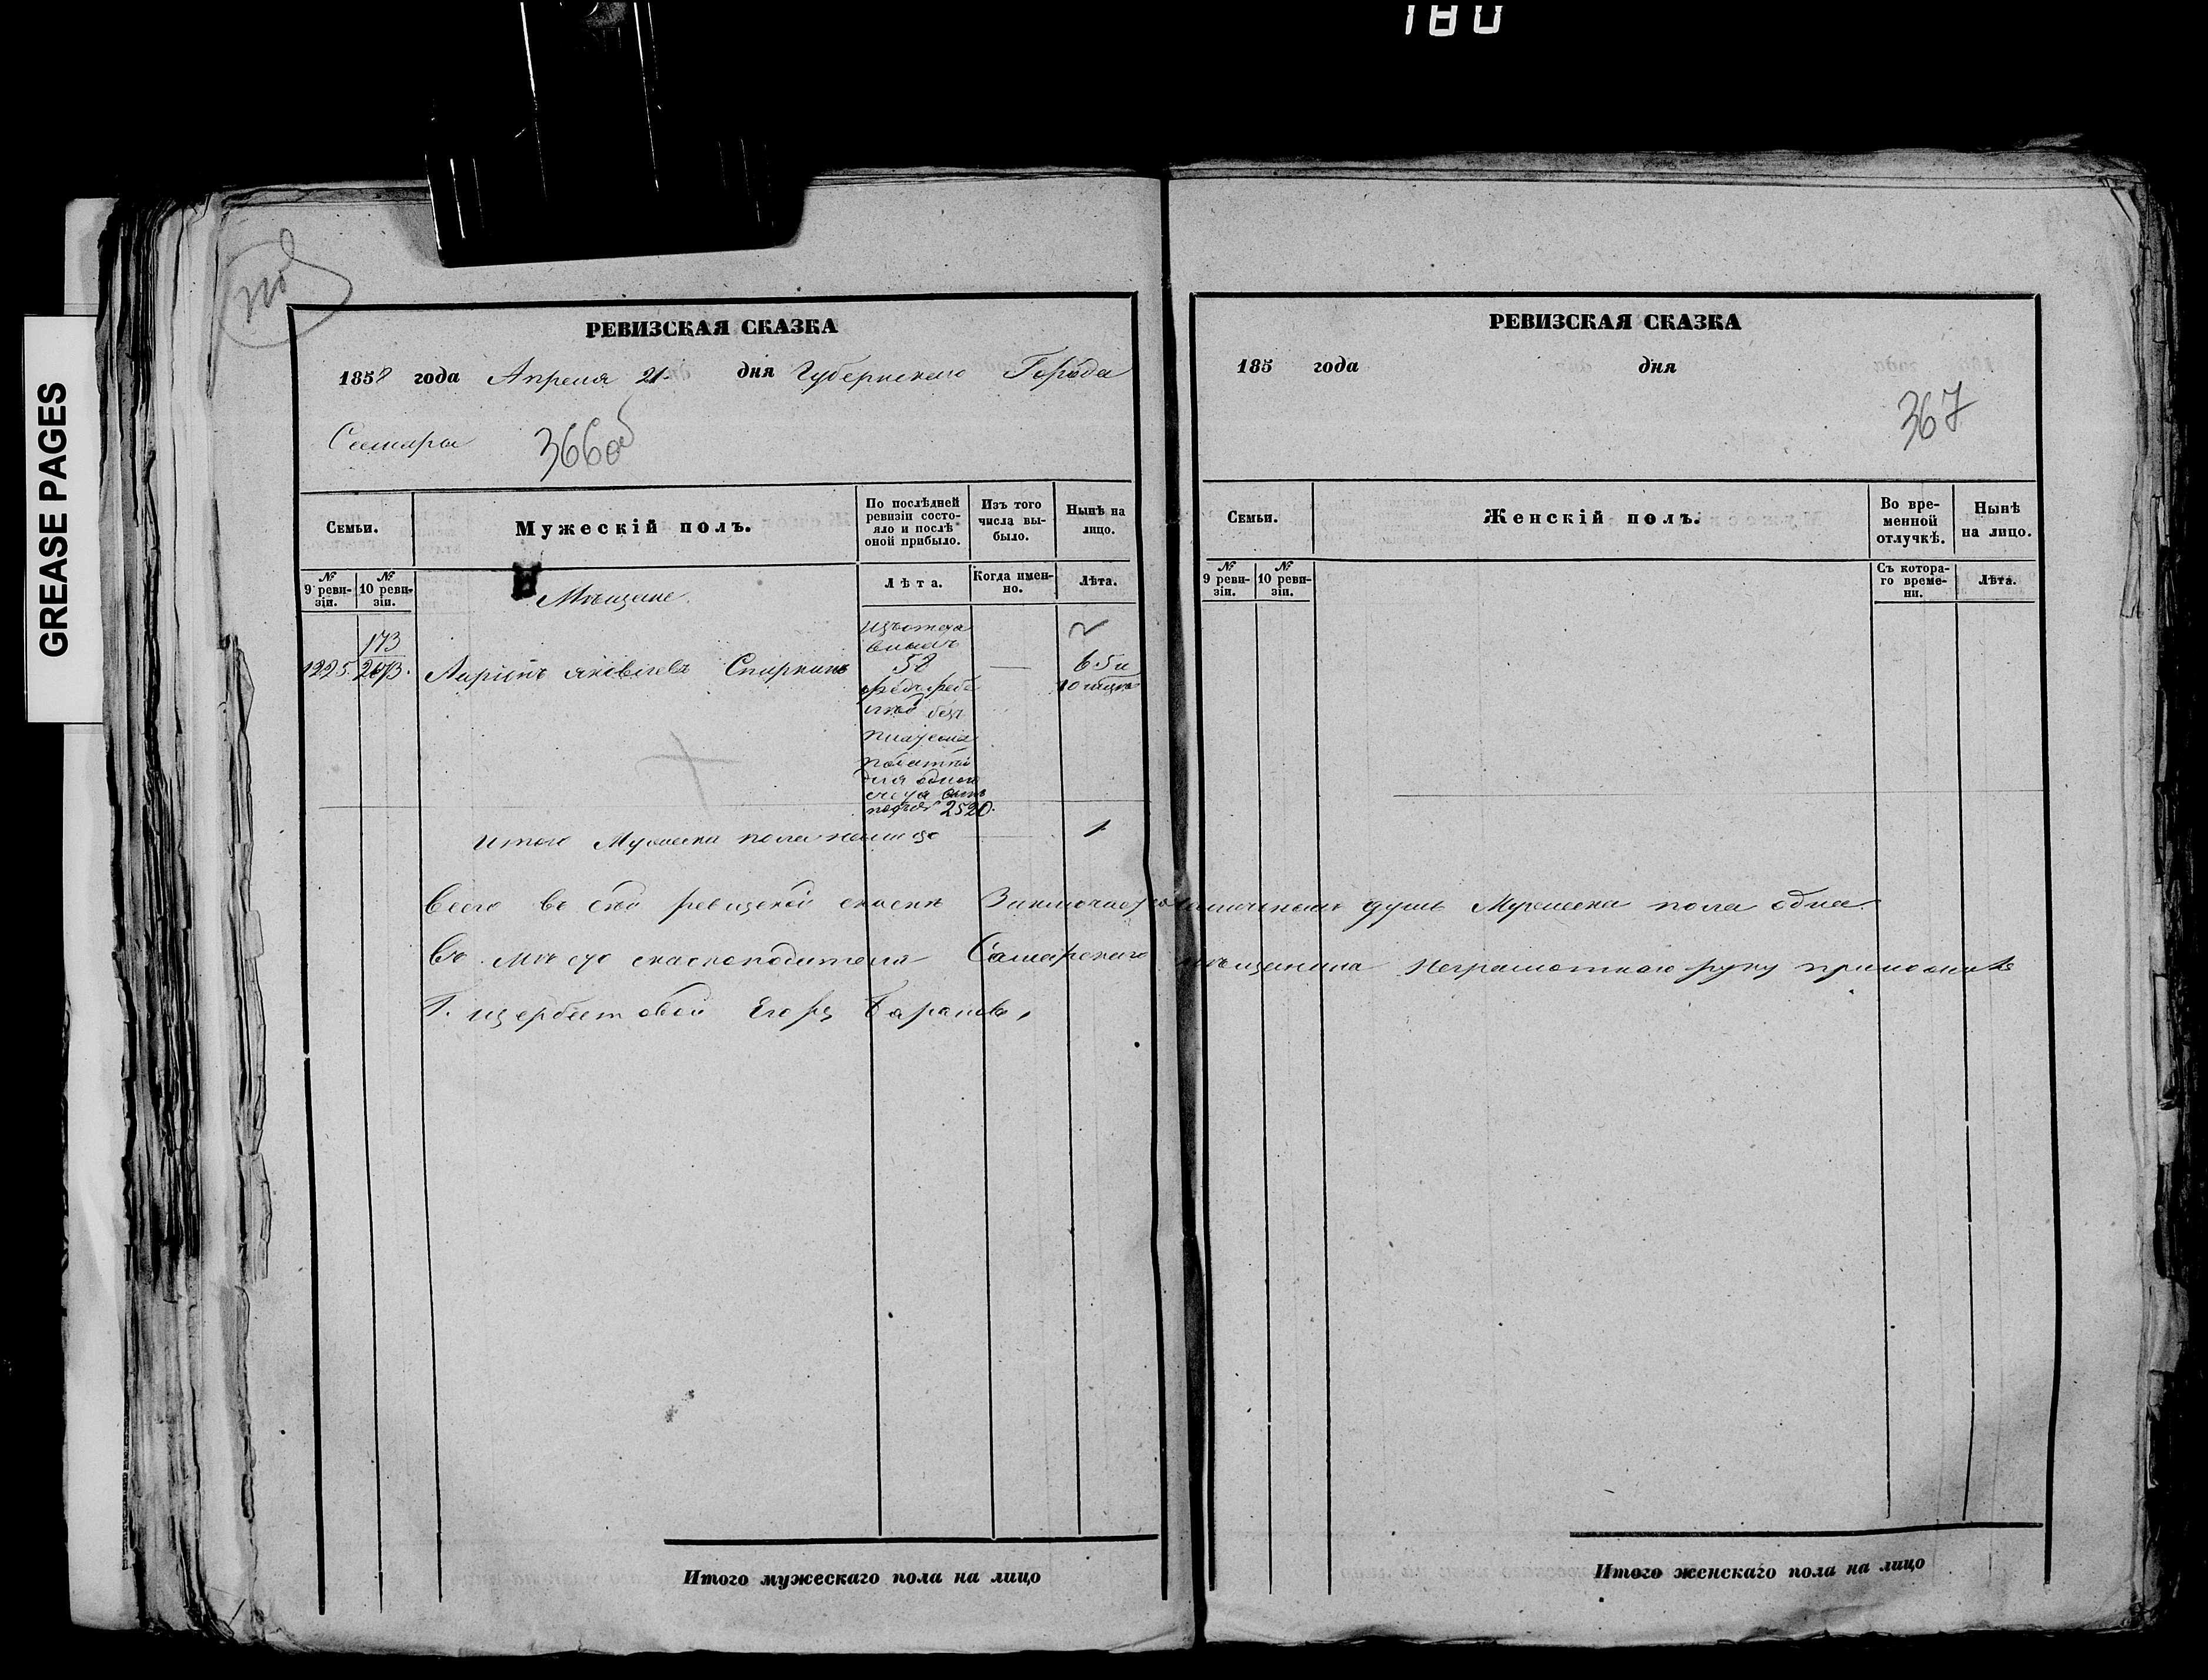 180
GREASE PAGES
РЕВИЗСКАЯ СКАЗКА
1858 года Апреля 21 дня Губернскаго Города
Самары 366об
Семьи.
Мужескій полъ.
По послѣдней ревизіи состояло и послѣ оной прибыло.
Изъ того числа выбыло.
Нынѣ на лицо.
№ 9 ревизіи.
№ 10 ревизіи.
Лѣта.
Когда именно.
Лѣта.
Мѣщане
173
1225. 2073. Ларіонъ Яковлевъ 52 — 65 и
10
безъ
платежа
податей
для одного
счета
2520.
Итого Мужеска пола налицо 1
Всего въ сей ревизской сказкѣ Заключается душъ Мужеска пола одна
Въ мѣсто сказкоподателя Самарскаго мѣщанина Неграмотнаго руку приложилъ
Егоръ Барановъ
Итого мужескаго пола на лицо
РЕВИЗСКАЯ СКАЗКА
185 года дня
367
Семьи.
Женскій полъ.
Во временной отлучкѣ.
Нынѣ на лицо.
№ 9 ревизіи.
№ 10 ревизіи.
Съ котораго времени.
Лѣта.
Итого женскаго пола на лицо